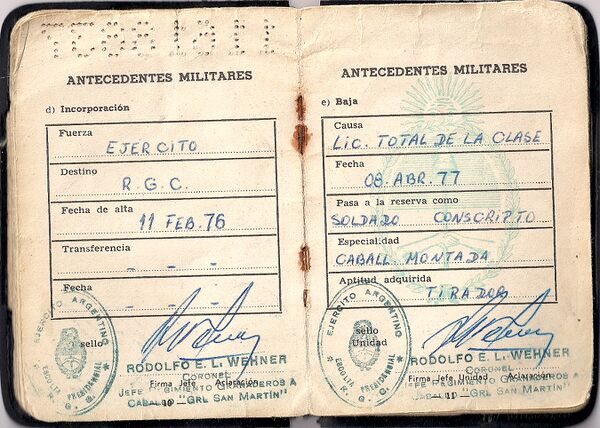 ANTECEDENTES MILITARES
d) Incorporación
Fuerza
EJERCITO
Destino
R.G.C.
Fecha de alta
11 FEB. 76
Transferencia
- - -
Fecha
- - -
EJERCITO ARGENTINO
ESCOLTA PRESIDENCIAL
R. G. C.
sello
RODOLFO E. L. WEHNER
CORONEL
Firma Jefe Aclaración
JEFE REGIMIENTO GRANADEROS A
CABALLO "GRL SAN MARTÍN"
— 10 —
ANTECEDENTES MILITARES
e) Baja
Causa
Lic. TOTAL DE LA CLASE
Fecha
08. ABR. 77
Pasa a la reserva como
SOLDADO CONSCRIPTO
Especialidad
CABALL. MONTADA
Aptitud adquirida
TIRADOR
EJERCITO ARGENTINO
ESCOLTA PRESIDENCIAL
R. G. C.
sello
Unidad
RODOLFO E. L. WEHNER
CORONEL
Firma Jefe Unidad Aclaración
JEFE REGIMIENTO GRANADEROS A
CABALLO "GRL SAN MARTÍN"
— 11 —